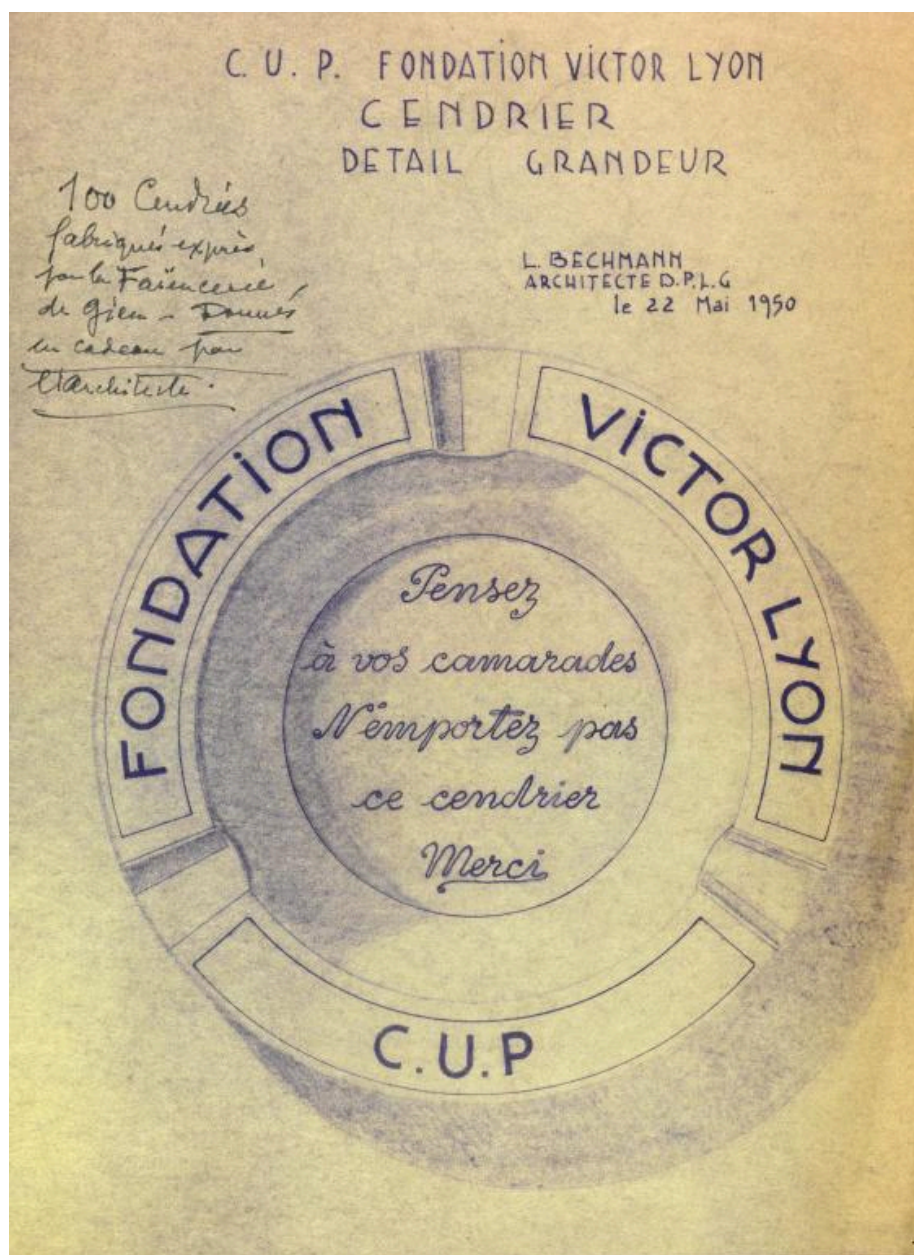 C. U. P. FONDATION VICTOR LYON
CENDRIER
DETAIL GRANDEUR
100 Cendriés
fabriqués exprès
par la Faïencerie
de Gien - Donnés
en cadeau par
l'architecte.
L. BECHMANN
ARCHITECTE D.P.L.G
le 22 Mai 1950
FONDATION
VICTOR LYON
Pensez
à vos camarades
N'emportez pas
ce cendrier
Merci
C.U.P